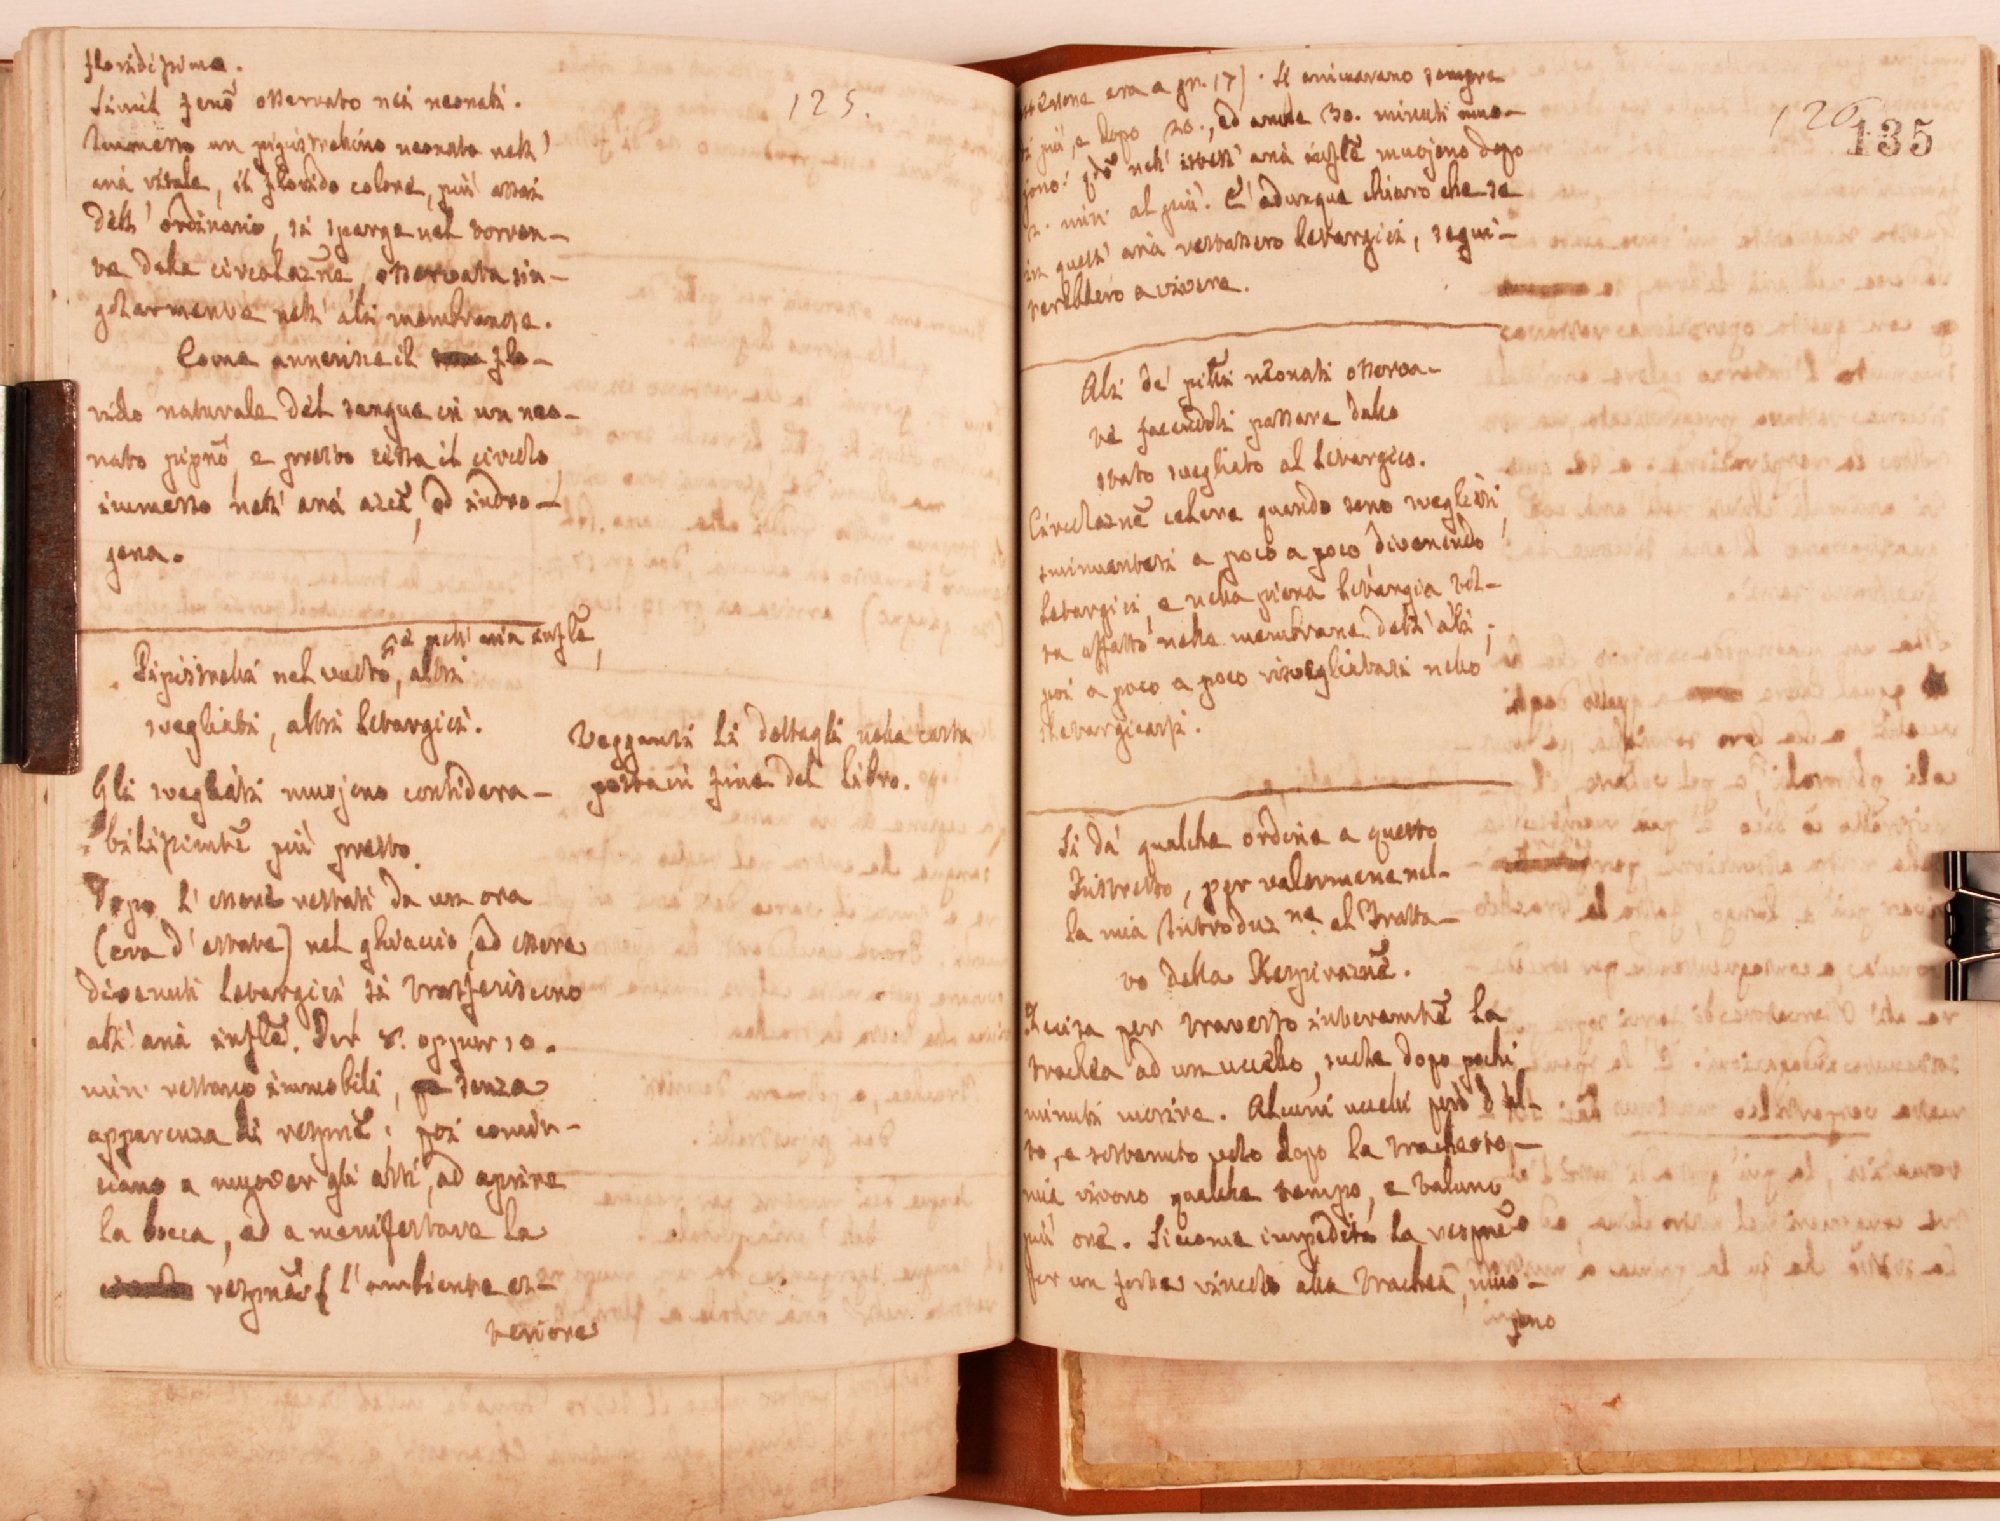 floridissima.
125.
Simil fenõ osservato nei neonati.
Immesso un pipistrelino neonato nell'
aria vitale, il florido colore, più assai
dell'ordinario, si sparge nel torren-
te della circolaznẽ, osservata sin-
golarmente nell'ali membranose.
Come annerisce il flo-
rido naturale del sangue in un neo-
nato pipñõ, e presto cessa il circolo
immesso nell'aria azcã, od indro-
gena.
e nell'aria inflẽ,
Pipistrelli nel vuoto, altri
svegliati, altri letargici.
Gli svegliati muojono considera-
bilissimtẽ più presto.
Dopo l'essere restati da un ora
(era d'estate) nel ghiaccio, ed essere
divenuti letargici si trasferiscono
all'aria inflẽ. Per 8. oppur 10.
min. restano immobili, senza
apparenza di respnẽ; poi comin-
ciano a muover gli arti, ad aprire
la bocca, ed a manifestare la
respnẽ (l'ambiente es-
teriore
Veggansi li dettagli nella carta
posta in fine del libro.
126
135
era a gr. 17). Si animavano sempre
più, e dopo 20., ed anche 30. minuti muo-
jono: qdõ nell'istess'aria inflẽ muojono dopo
min. al più. E' adunque chiaro che se
in quest'aria restassero letargici, segui-
terebbero a vivere.
Ali de' pilli neonati osserva-
te facendoli passare dallo
stato svegliato al letargico.
Circolaznẽ celere quando sono svegliati,
sminuentesi a poco a poco divenendo
letargici, e nella piena letargia tol-
ta affatto nelle membrane dell'ali;
poi a poco a poco risvegliatasi nello
sletargicarsi.
Si dà qualche ordine a questo
Ristretto, per valermene nel-
la mia Introduzne. al Tratta-
to della Respiraznẽ.
Recisa per traverso interamtẽ la
trachea ad un uccello, suole dopo pochi
minuti morire. Alcuni uccelli però d'al-
to, e sostenuto volo dopo la tracheoto-
mia vivono qualche tempo, e taluno
più ore. Siccome impedita la respnẽ
per un forte vincolo alla trachea, muo-
jono